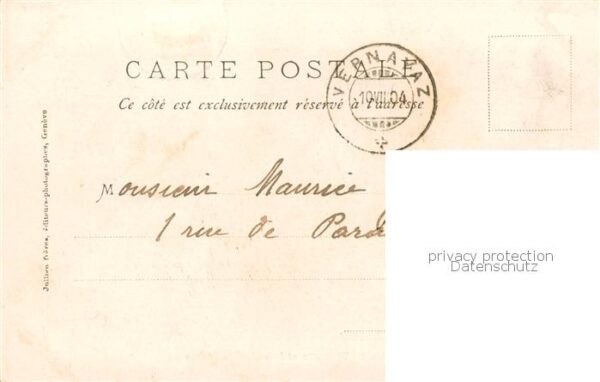 CARTE POSTALE
Ce côté est exclusivement réservé à l'adresse
VERNAYAZ
10 VII 04
Monsieur Maurice
1 rue de
Jullien frères, éditeurs-photographes, Genève
privacy protection
Datenschutz